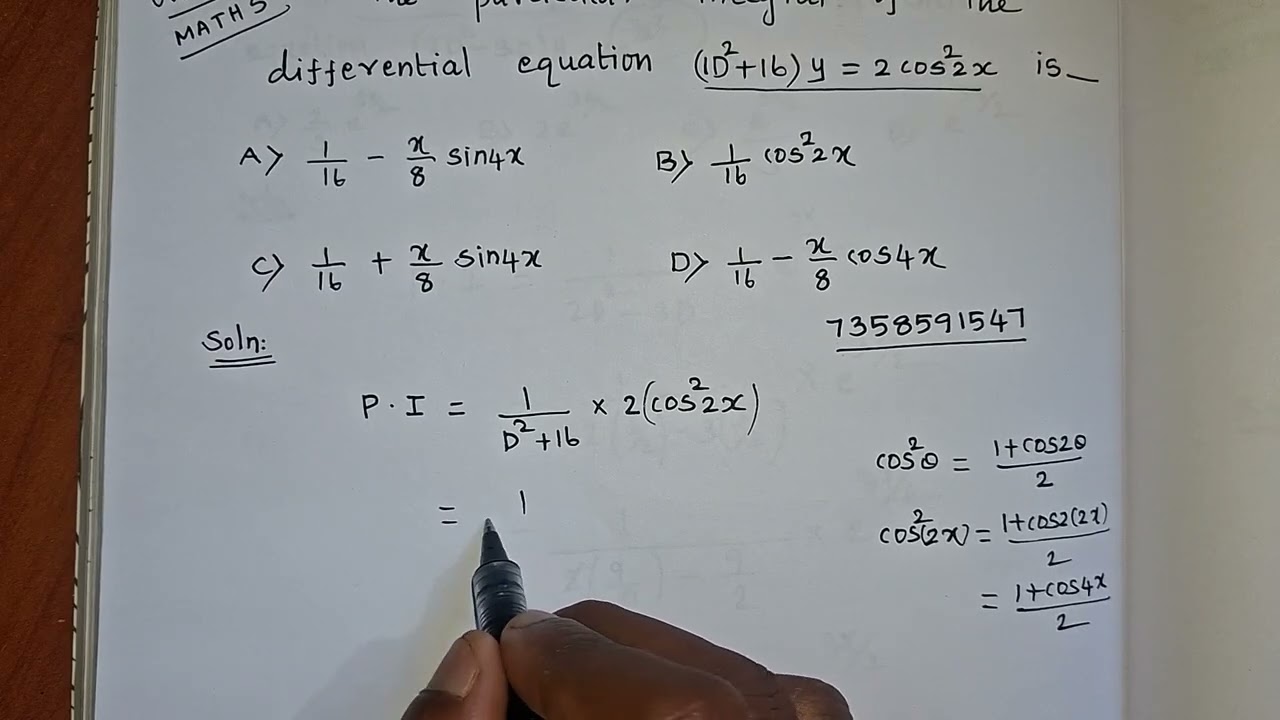 MATHS The particular integral of the
differential equation (D²+16) y = 2 cos²2x is_
A) 1/16 - x/8 sin4x B) 1/16 cos²2x
C) 1/16 + x/8 sin4x D) 1/16 - x/8 cos4x
7358591547
Soln:
P.I = 1/(D²+16) × 2(cos²2x)
cos²θ = (1+cos2θ)/2
= 1
cos²(2x) = (1+cos2(2x))/2
= (1+cos4x)/2